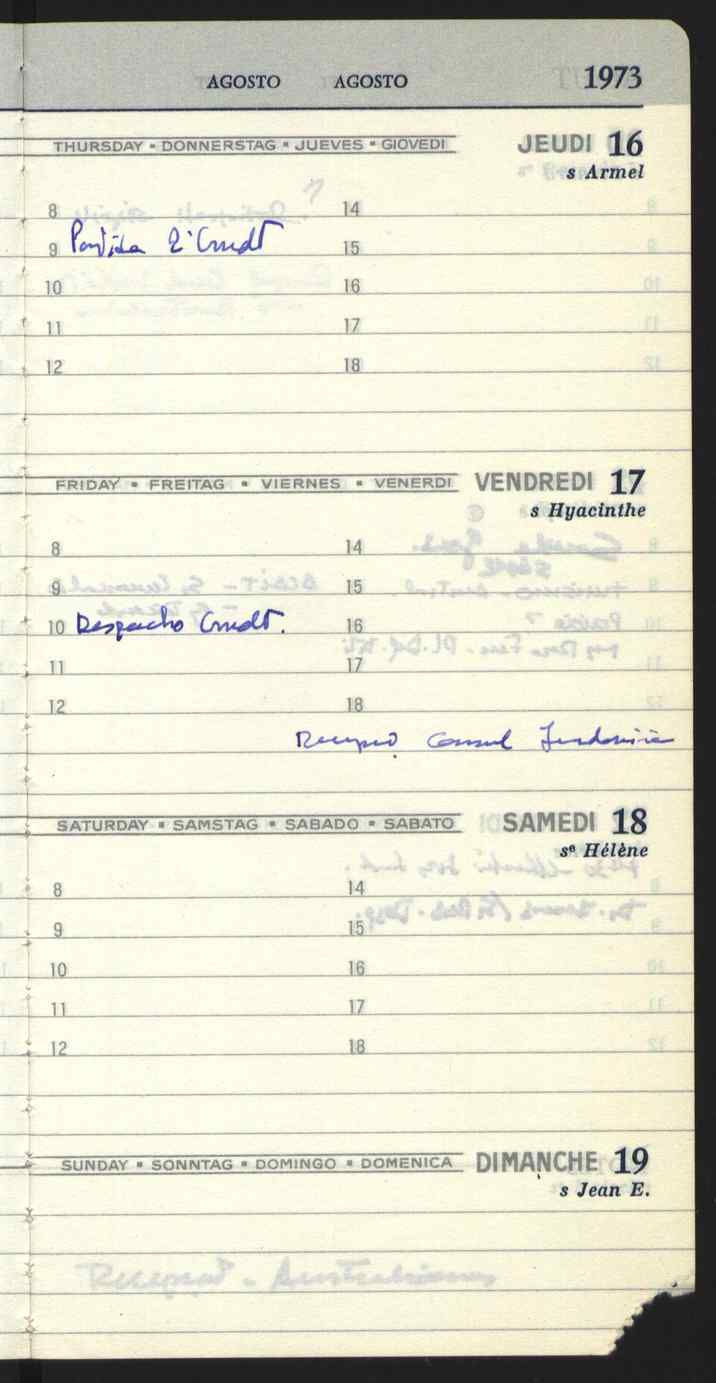 AGOSTO AGOSTO 1973
THURSDAY • DONNERSTAG • JUEVES • GIOVEDI JEUDI 16
s Armel
8 14
9 Partida 15
10 16
11 17
12 18
FRIDAY • FREITAG • VIERNES • VENERDI VENDREDI 17
s Hyacinthe
8 14
9 15
10 Despacho 16
11 17
12 18
Consul
SATURDAY • SAMSTAG • SABADO • SABATO SAMEDI 18
sᵉ Hélène
8 14
9 15
10 16
11 17
12 18
SUNDAY • SONNTAG • DOMINGO • DOMENICA DIMANCHE 19
s Jean E.